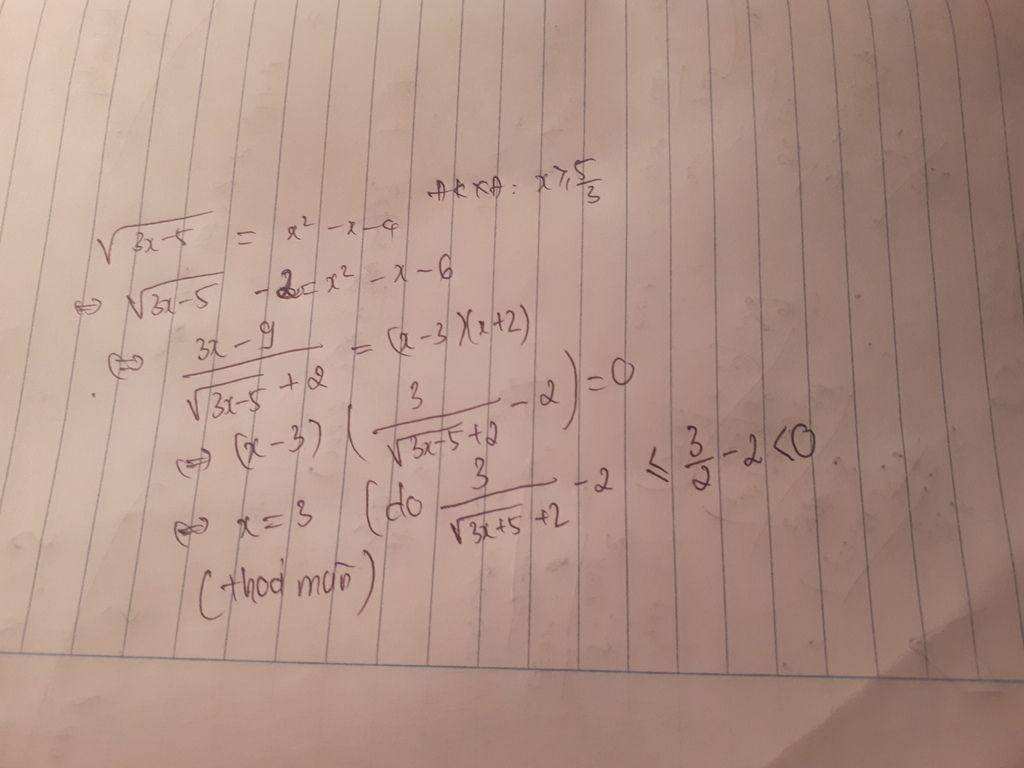 ĐKXĐ: x ≥ 5/3
√(3x-5) = x² - x - 4
⇔ √(3x-5) - 2 = x² - x - 6
⇔ (3x - 9)/(√(3x-5) + 2) = (x-3)(x+2)
⇔ (x-3) (3/(√(3x-5)+2) - 2) = 0
⇔ x = 3 (do 3/(√(3x+5)+2) - 2 ≤ 3/2 - 2 < 0
(thoả mãn)